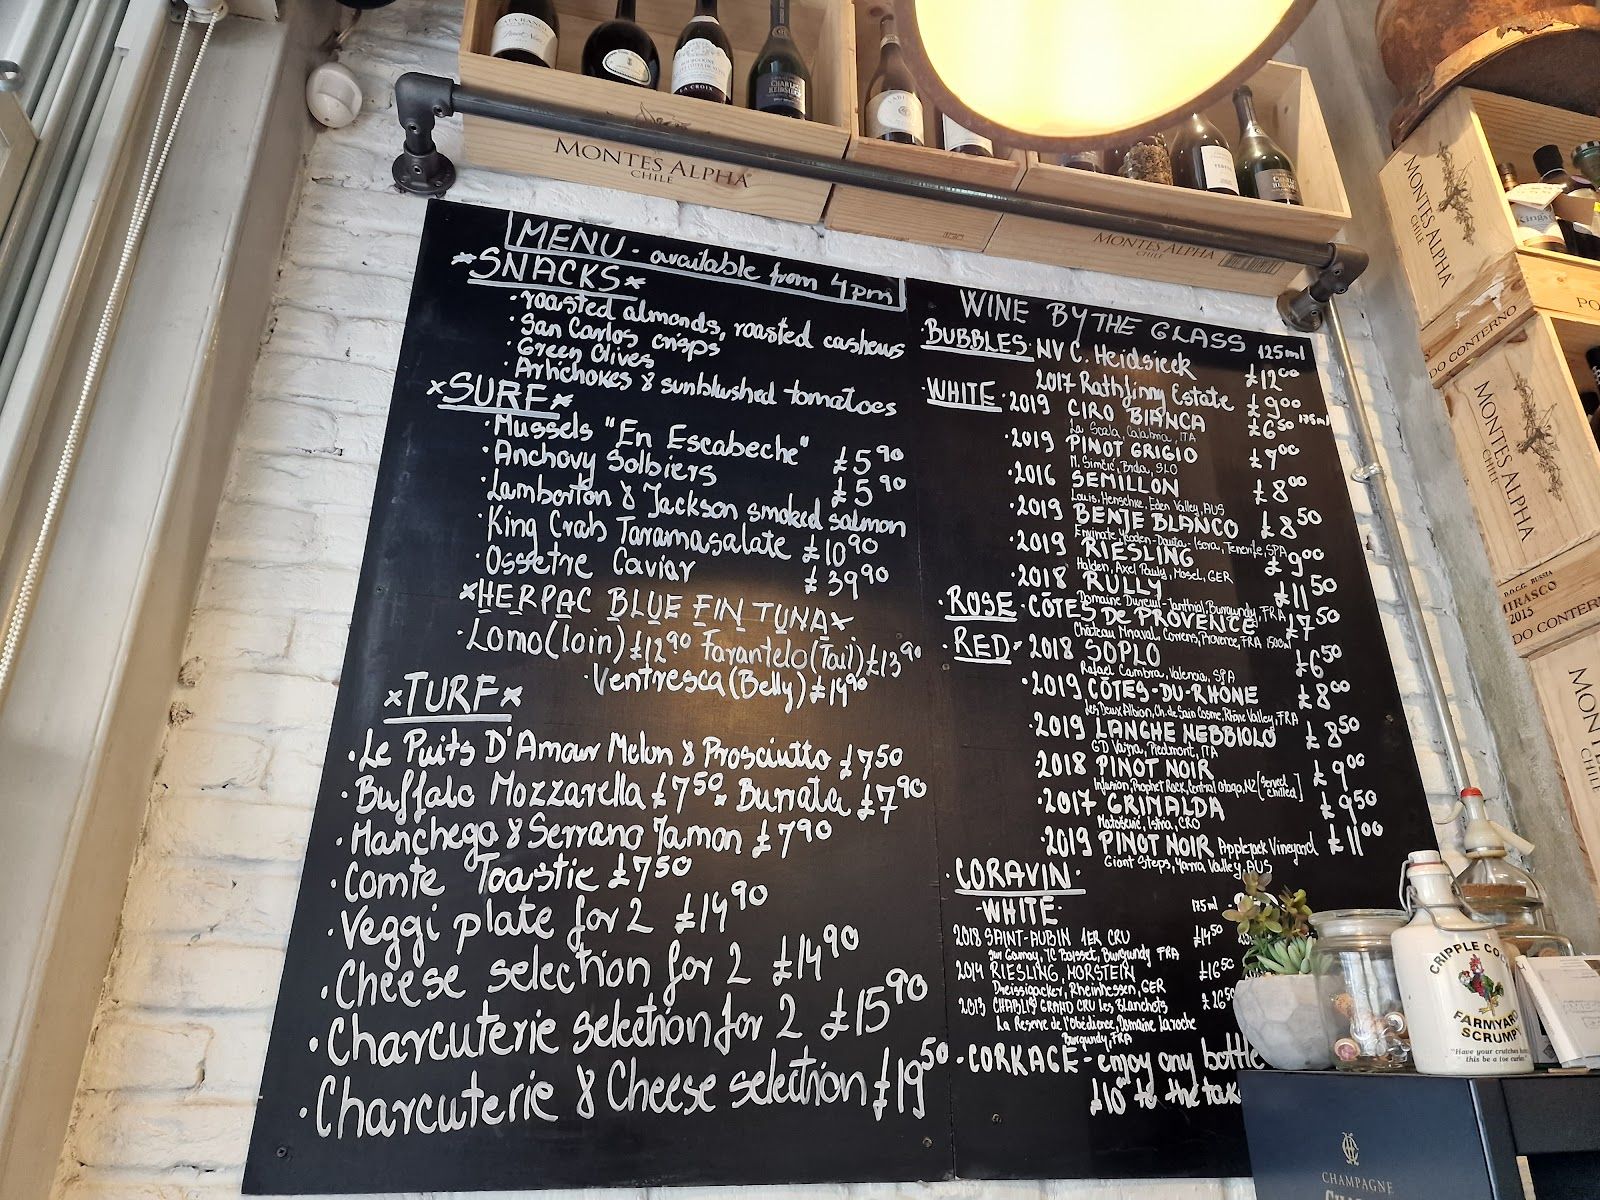 MONTES ALPHA
CHILE
CHARLES HEIDSIECK
LA CROIX
MONTES ALPHA
CHILE
MONTES ALPHA
CHILE
DO CONTERNO
MONTES ALPHA
CHILE
MIRASCO
2015
DO CONTERNO
MENU - available from 4pm
*SNACKS*
·roasted almonds, roasted cashews
·San Carlos crisps
·Green Olives
·Artichokes & sunblushed tomatoes
*SURF*
·Mussels "En Escabeche" £5 90
·Anchovy Solbiers £5 90
·Lamborton & Jackson smoked salmon
·King Crab Taramasalate £10 90
·Ossetre Caviar £39 90
*HERPAC BLUE FIN TUNA*
·Lomo(loin) £12 90 Farantelo(Tail) £13 90
·Ventresca(Belly) £14 90
*TURF*
·Le Puits D'Amour Melon & Prosciutto £7 50
·Buffalo Mozzarella £7 50 * Burrata £7 90
·Manchego & Serrano Jamon £7 90
·Comte Toastie £7 50
·Veggi plate for 2 £14 90
·Cheese selection for 2 £14 90
·Charcuterie selection for 2 £15 90
·Charcuterie & Cheese selection £19 50
WINE BY THE GLASS 125ml
·BUBBLES· NV C. Heidsieck £12 00
2017 Rathfinny Estate £9 00
·WHITE ·2019 CIRO BIANCA £6 50 175ml
La Scala, Calabria, ITA
·2019 PINOT GRIGIO £7 00
M. Simčič, Brda, SLO
·2016 SEMILLON £8 00
Louis, Henschke, Eden Valley, AUS
·2019 BENJE BLANCO £8 50
Envinate, Ycoden-Dauta-Isora, Tenerife, SPA
·2019 RIESLING £9 00
Halden, Axel Pauly, Mosel, GER
·2018 RULLY £11 50
Domaine Dureuil-Janthial, Burgundy, FRA
·ROSE ·CÔTES DE PROVENCE £7 50
Château Miraval, Correns, Provence, FRA 1500ml
·RED· 2018 SOPLO £6 50
Rafael Cambra, Valencia, SPA
·2019 CÔTES-DU-RHÔNE £8 00
Les Deux Albion, Ch. de Sain Cosme, Rhône Valley, FRA
·2019 LANGHE NEBBIOLO £8 50
GD Vajra, Piedmont, ITA
·2018 PINOT NOIR £9 00
Infusion, Prophet Rock, Central Otago, NZ [served chilled]
·2017 GRIMALDA £9 50
Matošević, Istria, CRO
·2019 PINOT NOIR Applejack Vineyard £11 00
Giant Steps, Yarra Valley, AUS
·CORAVIN·
-WHITE- 175ml
2018 SAINT-AUBIN 1ER CRU £14 50
Sur Gamay, JC Boisset, Burgundy FRA
2014 RIESLING, MORSTEIN £16 50
Dreissigacker, Rheinhessen, GER
2013 CHABLIS GRAND CRU les Blanchots £20 50
La Reserve de l'Obédience, Domaine Laroche
Burgundy, FRA
·CORKAGE - enjoy any bottle
£10 to the
CRIPPLE
FARMYARD
"Have your crutches
this be a toe curler"
CHAMPAGNE